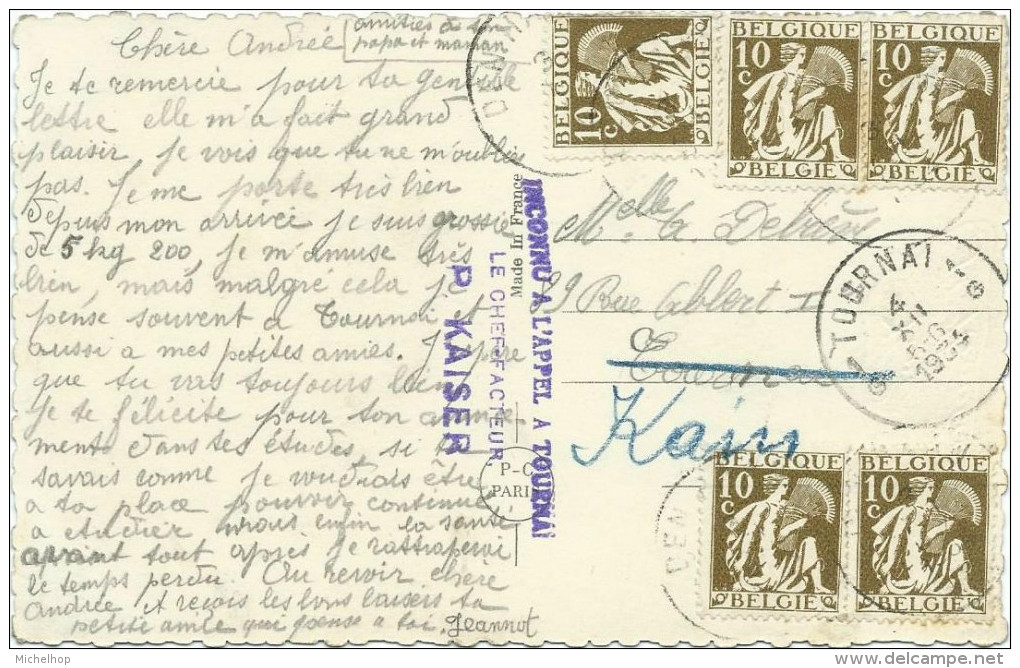 Chère Andrée
amitiés à ton
papa et maman
Je te remercie pour ta gentille
lettre elle m'a fait grand
plaisir, je vois que tu ne m'oublie
pas. Je me porte très bien
depuis mon arrivée je suis grossie
de 5 kg 200, je m'amuse très
bien, mais malgré cela je
pense souvent a Tournai et
aussi a mes petites amies. J'espère
que tu vas toujours bien,
je te félicite pour ton
dans tes études, si tu
savais comme je voudrais être
a ta place pouvoir continuer
a étudier mais enfin la santé
avant tout après je rattraperai
le temps perdu. Au revoir chère
Andrée et reçois les bons baisers ta
petite amie qui pense a toi. Jeannot
INCONNU A L'APPEL A TOURNAI
LE CHEF-FACTEUR
P. KAISER
Made in France
P-C
PARIS
BELGIQUE
10 c
BELGIE
BELGIQUE
10 c
BELGIE
BELGIQUE
10 c
BELGIE
Melle A.
29 Rue Albert I
Tournai
Kain
TOURNAI 1
4
XII
5-6
1934
BELGIQUE
10 c
BELGIE
BELGIQUE
10 c
BELGIE
Michelhop
delcampe.net